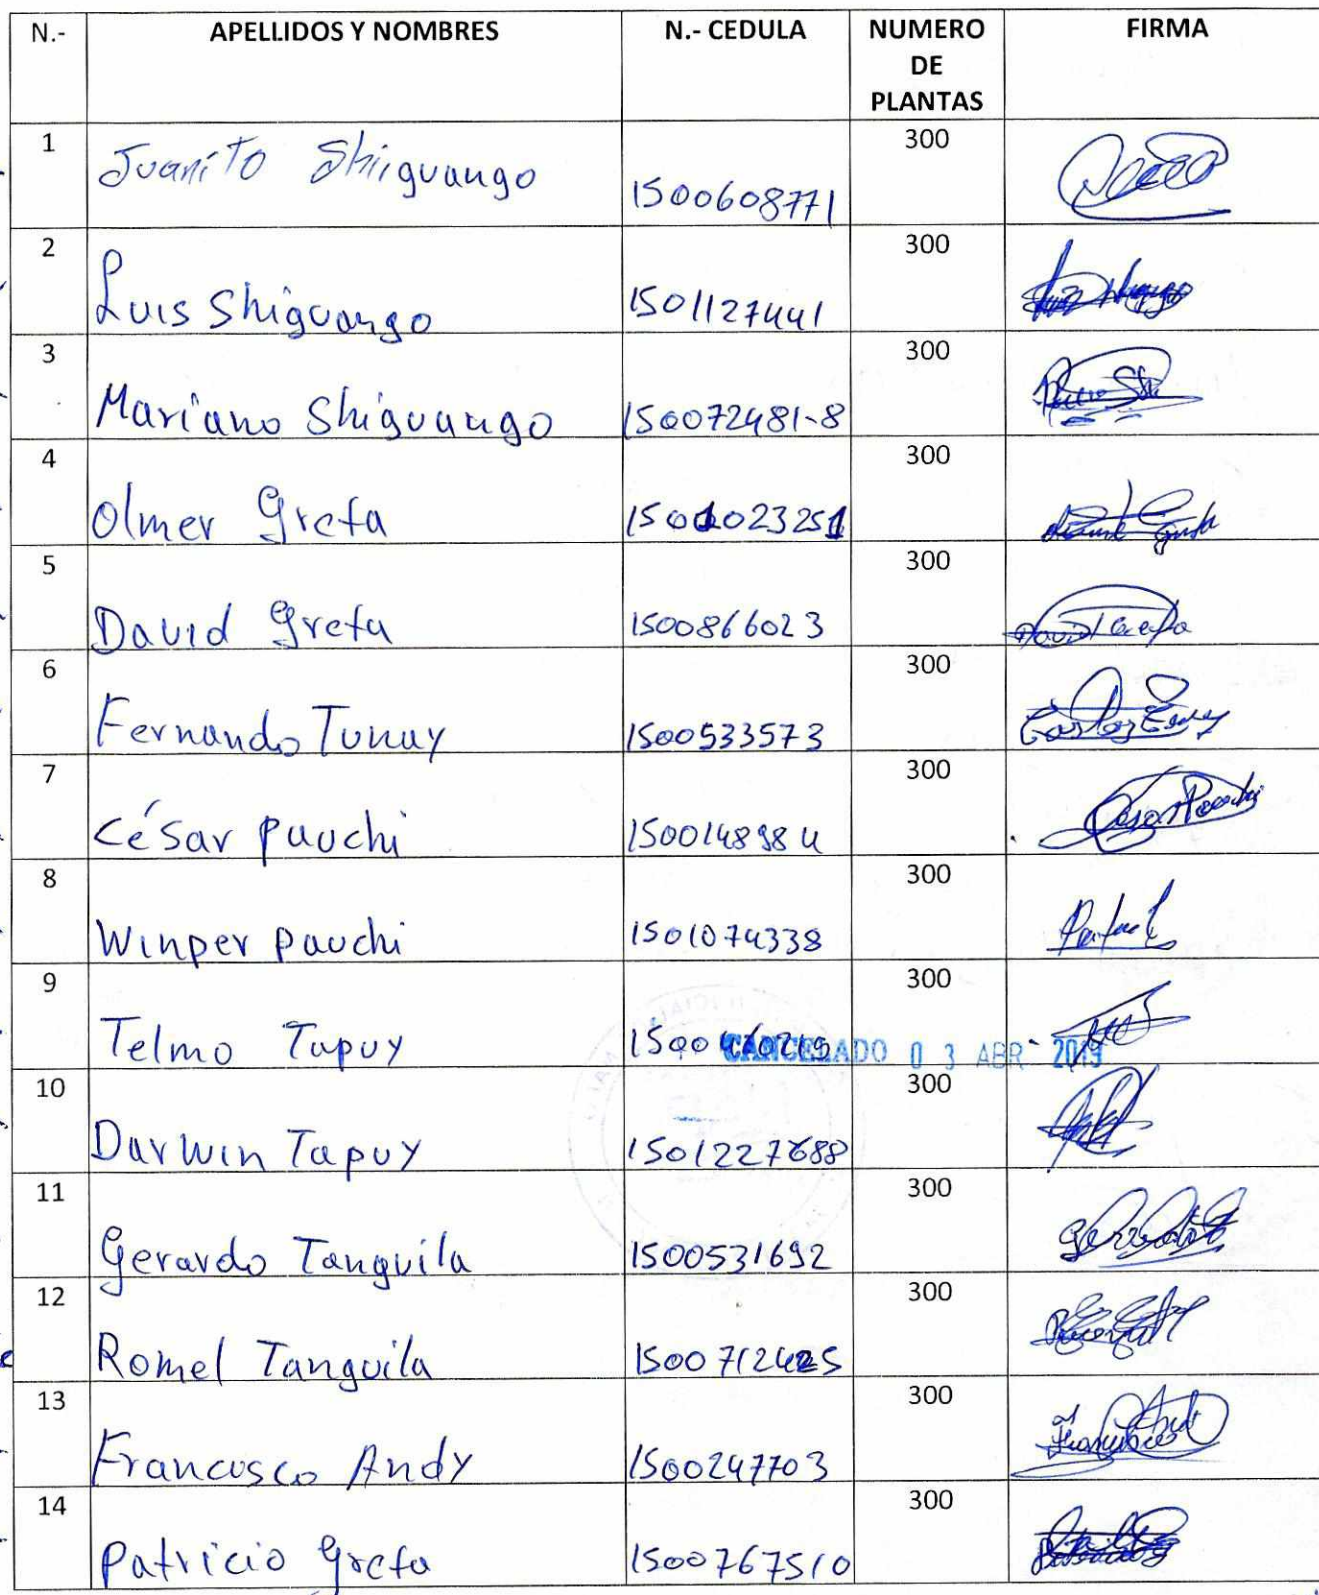 N.- APELLIDOS Y NOMBRES N.- CEDULA NUMERO DE PLANTAS FIRMA
1 Juanito Shiguango 1500608771 300
2 Luis Shiguango 1501127441 300
3 Mariano Shiguango 150072481-8 300
4 Olmer Grefa 1501023251 300
5 David Grefa 1500866023 300 David Grefa
6 Fernando Tunay 1500533573 300
7 César Pauchi 150014898 4 300 Cesar Pauchi
8 Winper Pauchi 1501074338 300 Rafael
9 Telmo Tapuy 300
CANCELADO 0 3 ABR 2019
10 Darwin Tapuy 1501227688 300
11 Gerardo Tanguila 1500531692 300 Gerardo
12 Romel Tanguila 1500712425 300
13 Francisco Andy 1500247703 300 Francisco
14 Patricio Grefa 1500767510 300